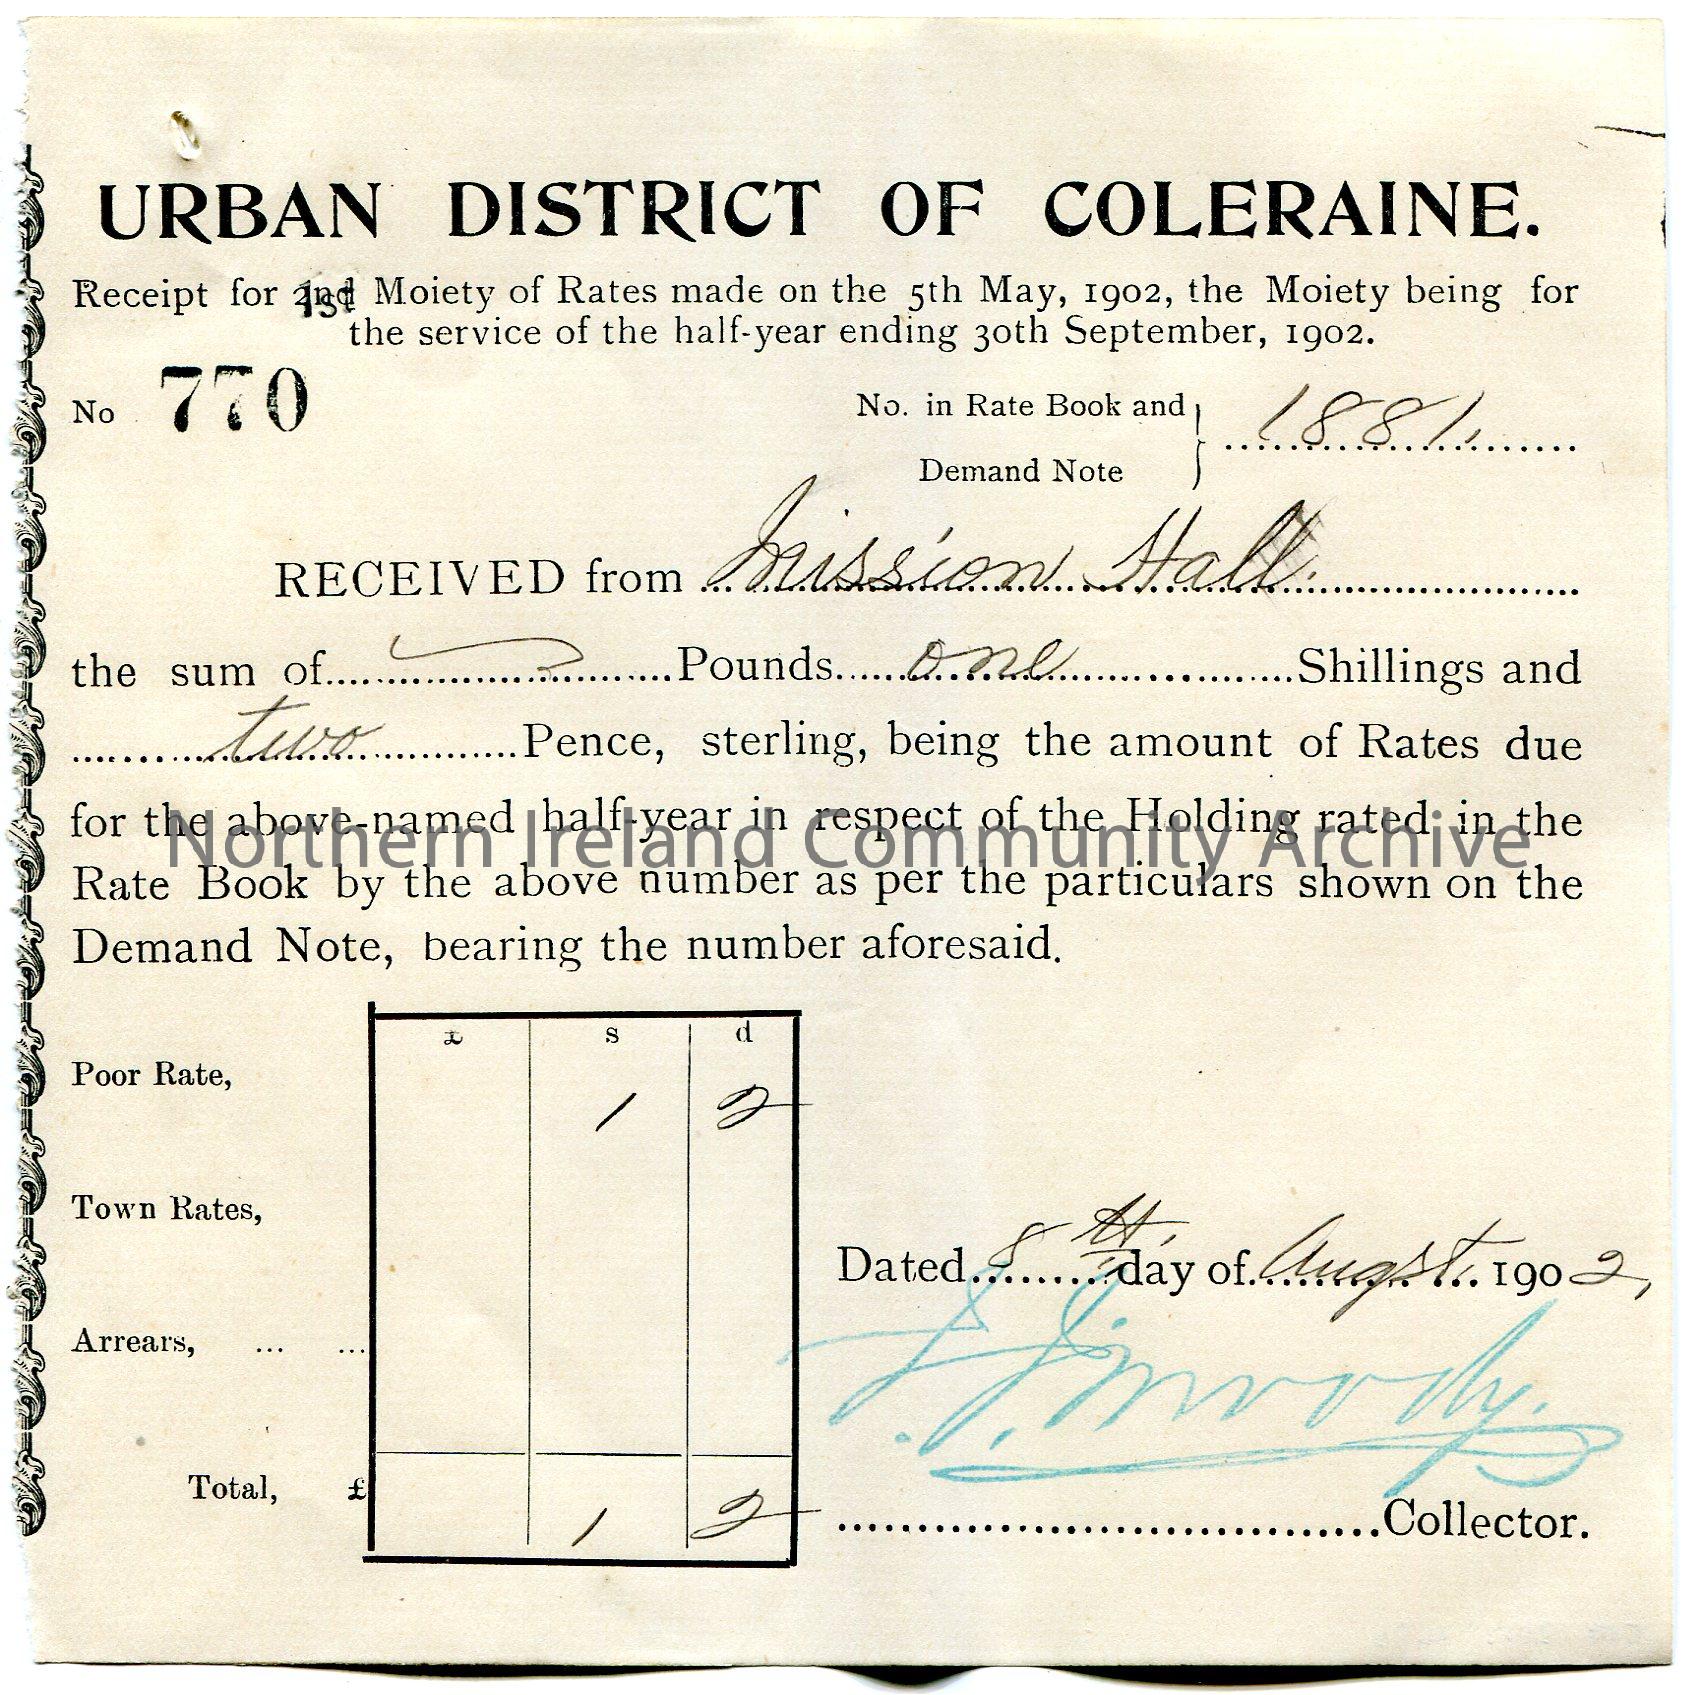 URBAN DISTRICT OF COLERAINE.
Receipt for 1st Moiety of Rates made on the 5th May, 1902, the Moiety being for
the service of the half-year ending 30th September, 1902.
No 770
No. in Rate Book and
Demand Note } 1881.
RECEIVED from Mission Hall
the sum of Pounds one Shillings and
two Pence, sterling, being the amount of Rates due
for the above-named half-year in respect of the Holding rated in the
Northern Ireland Community Archive
Rate Book by the above number as per the particulars shown on the
Demand Note, bearing the number aforesaid.
£ s d
Poor Rate, 1 2
Town Rates,
Arrears, ... ...
Dated 8th day of Augst. 1902,
Total, £ 1 2
Collector.